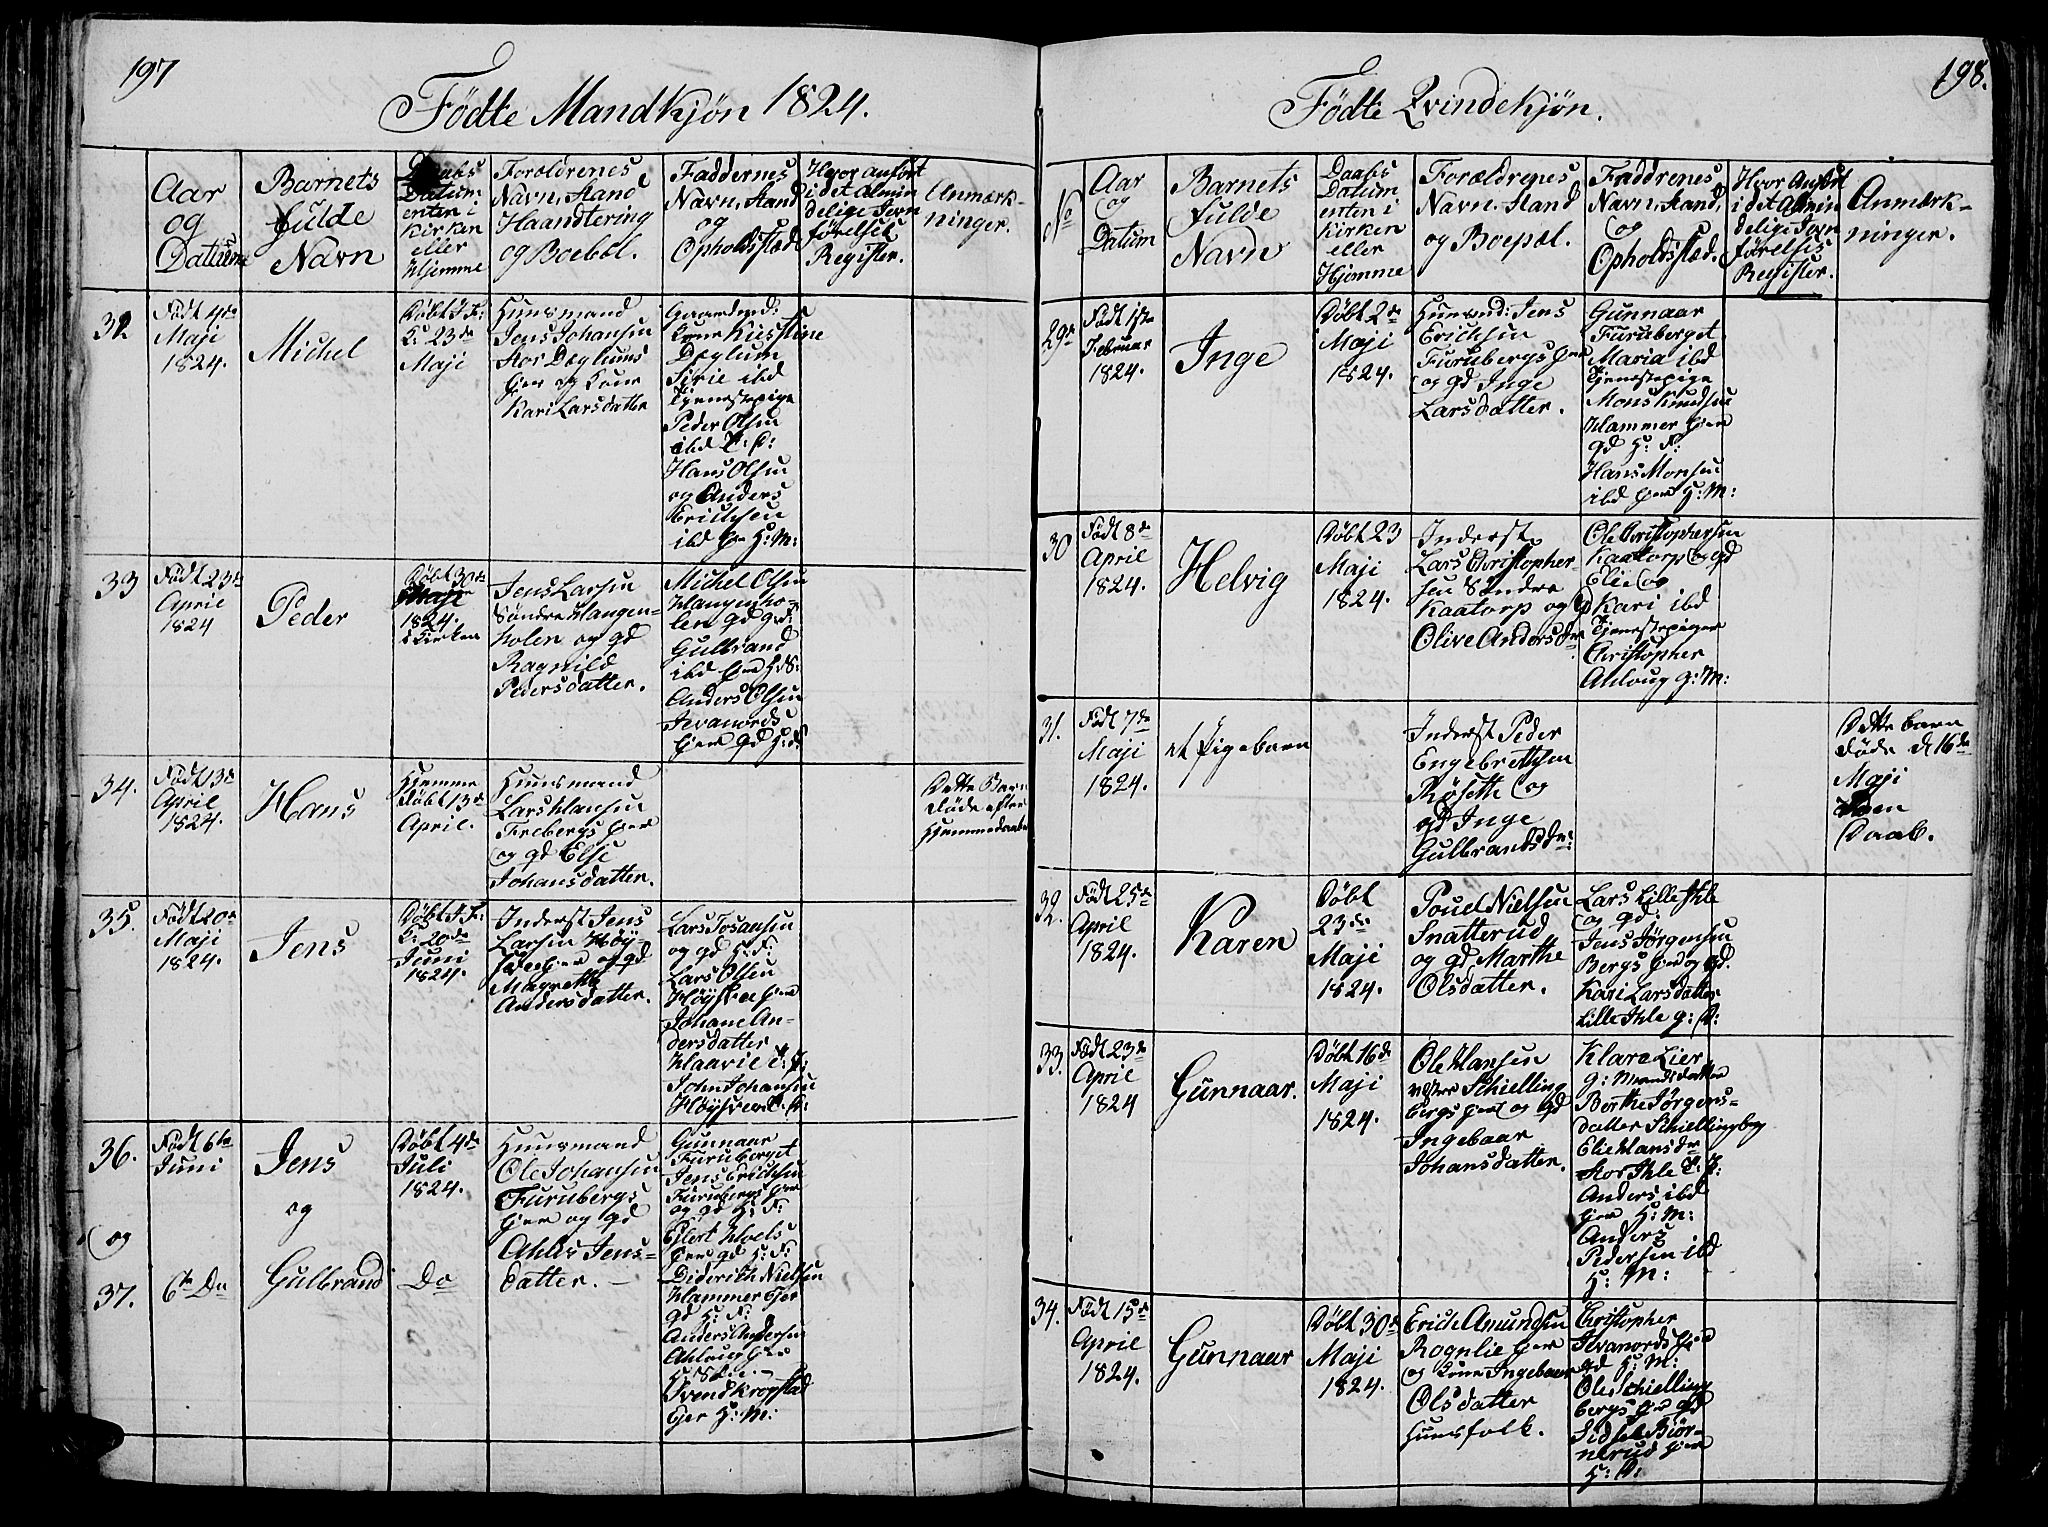 197
Fødte Mandkjøn 1824.
Aar
og
Datum
Barnets
fulde
Navn
Daabs
Datum
enten i
Kirken
eller
Hjemme
Foroldrenes
Navn, Stand
Haandtering
og Boebol.
Faddernes
Navn, Stand
og
Opholdsstæd
Hvor anført
i det Almin
delige Jevn
førelses
Register.
Anmærk-
ninger.
32
Født 4de
Maji
1824.
Michel
Døbt J F:
K: 23de
Maji
Huusmand
Jens Johansen
Stor Døglums
Ejer og Kone
Kari Larsdatter
Kone Kiestine
Døglum
Sirie ibd
Tjenestepige
Peder Olsen
ibd
Hans Olsen
og Anders
Erichsen
ibd Ejer H: M:
33
Født 23de
April
1824
Peder
Døbt 30de
Maji
1824.
i Kirken
Jens Larsen
Søndre Hangen-
holen og gd
Ragnild
Pedersdatter.
Michel Olsen
Hangenho-
len gd
Gulbrand
ibd
Anders Olsen
Sevanords
Ejer gd
34.
Født 13de
April
1824.
Hans
Hjemme
Døbt 13de
April.
Huusmand
Lars Hansen
Firebergs Ejer
og gd Else
Johansdatter.
Dette Barn
døde efter
Hjemmedaaben
35.
Født 20de
Maji
1824.
Jens
Døbt J F:
K: 20de
Juni
1824.
Inderst Jens
Larsen Høy-
og gd
Magrethe
Andersdatter.
Lars Tosansen
og gd H: F:
Lars Olsen
Johane An-
dersdatter
Klaavie
John Johansen
36.
Født 6te
Juni
Jens
og
Døbt 4de
Juli
1824.
Huusmand
Ole Johansen
Furubergs
Ejer og gd
Ahles Jens-
datter. –
Gunnaar
Furuberget
Jens Erichsen
Furubergs Ejer
og gd H: F:
Ejlert Moels
Ejer gd H: F:
Diderich Nielsen
Hammer Ejer
gd H: F:
Anders Andersen
Ahloug Ejer
Svend Kropstad
Ejer H: M:
og
37.
6te Do
Gulbrand
Do
198.
Fødte Qvindekjøn.
No
Aar
og
Datum
Barnets
fulde
Navn
Daabs
Datum
enten i
Kirken
eller
Hjemme
Forældrenes
Navn. Stand
og Boepæl.
Faddrenes
Navn, Stand,
og
Opholdsstæd.
Hvor Anført
i det Almin
delige Jevn
førelses
Register.
Anmærk-
ninger.
29de
Født 1ste
Februar
1824.
Inge
Døbt 2de
Maji
1824.
Huusmd: Jens
Erichsen
Furubergs Ejer
og gd Inge
Larsdatter.
Gunnaar
Furuberget
Maria ibd
Tjenestepige
Mons Knudsen
Hammer Ejer
gd H: F:
Hans Monsen
ibd Ejer H: M:
30
Født 8de
April
1824.
Helvig
Døbt 23
Maji
1824.
Inderst
Lars Christopher
sen Søndre
Kaatorp og gd
Olive Andersdr
Ole Christophersen
Kaatorp og gd
Elie og
Kari ibd
Tjenestepiger
Christopher
Ahloug g: M:
31.
Født 7de
Maji
1824.
et Pigebarn
Inderst Peder
Engebrethsen
Røsette og
gd Inge
Gulbrandsdr:
Dette barn
døde d 16de
Maji
uden
Daab.
32.
Født 25de
April
1824.
Karen
Døbt
23de
Maji
1824.
Poul Nielsen
Snatterud
og gd Marthe
Olsdatter.
Lars Lille Ihle
og gd:
Jens Jørgensen
Bergs Ejer og gd.
Kari Larsdatter
Lille Ihle g: K:
33.
Født 23de
April
1824
Gunnaar.
Døbt 16de
Maji
1824.
Ole Hansen
vester Schielling
bergs Ejer og gd
Ingebaar
Johansdatter.
Klara Lier
g: Mandsdatter
Berthe Jørgens-
datter Schiellingberg
Elie Hansdr
Stor Ihle
Anders ibd
Ejer H: M:
Anders
Pedersen ibd
H: M:
34.
Født 15de
April
1824.
Gunnaar
Døbt 30de
Maji
1824.
Erich Amundsen
Rognlie Ejer
og Kone Ingebaar
Olsdatter
Huusfolk.
Christopher
Sevanords Ejer
gd H: M:
Ole Schielling
bergs Ejer gd
Sidsel Biør-
nerud Ejer
H: K: